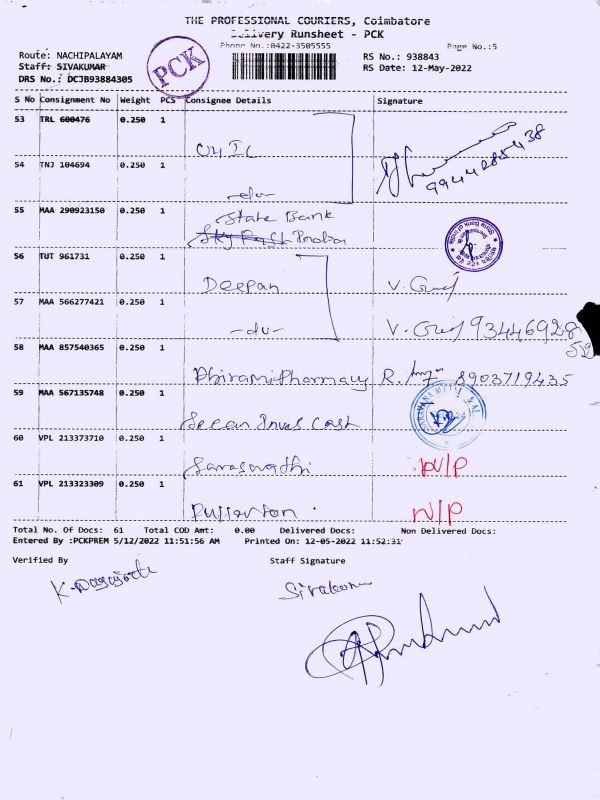 THE PROFESSIONAL COURIERS, Coimbatore
Delivery Runsheet - PCK
Phone No.:0422-3505555
Page No.:5
Route: NACHIPALAYAM
RS No.: 938843
Staff: SIVAKUMAR
RS Date: 12-May-2022
DRS No.: DCJB93884305
PCK
S No Consignment No Weight PCS Consignee Details Signature
53 TRL 600476 0.250 1
9944285438
54 TNJ 104694 0.250 1
-do-
55 MAA 290923150 0.250 1 State Bank
India
56 TUT 961731 0.250 1 Deepan V.
57 MAA 566277421 0.250 1 -do- V.
58 MAA 857540365 0.250 1 Abirami Pharmacy R. 8903719435
59 MAA 567135748 0.250 1
60 VPL 213373710 0.250 1 Saraswathi N/P
61 VPL 213323309 0.250 1 N/P
Total No. Of Docs: 61 Total COD Amt: 0.00 Delivered Docs: Non Delivered Docs:
Entered By :PCKPREM 5/12/2022 11:51:56 AM Printed On: 12-05-2022 11:52:31
Verified By Staff Signature